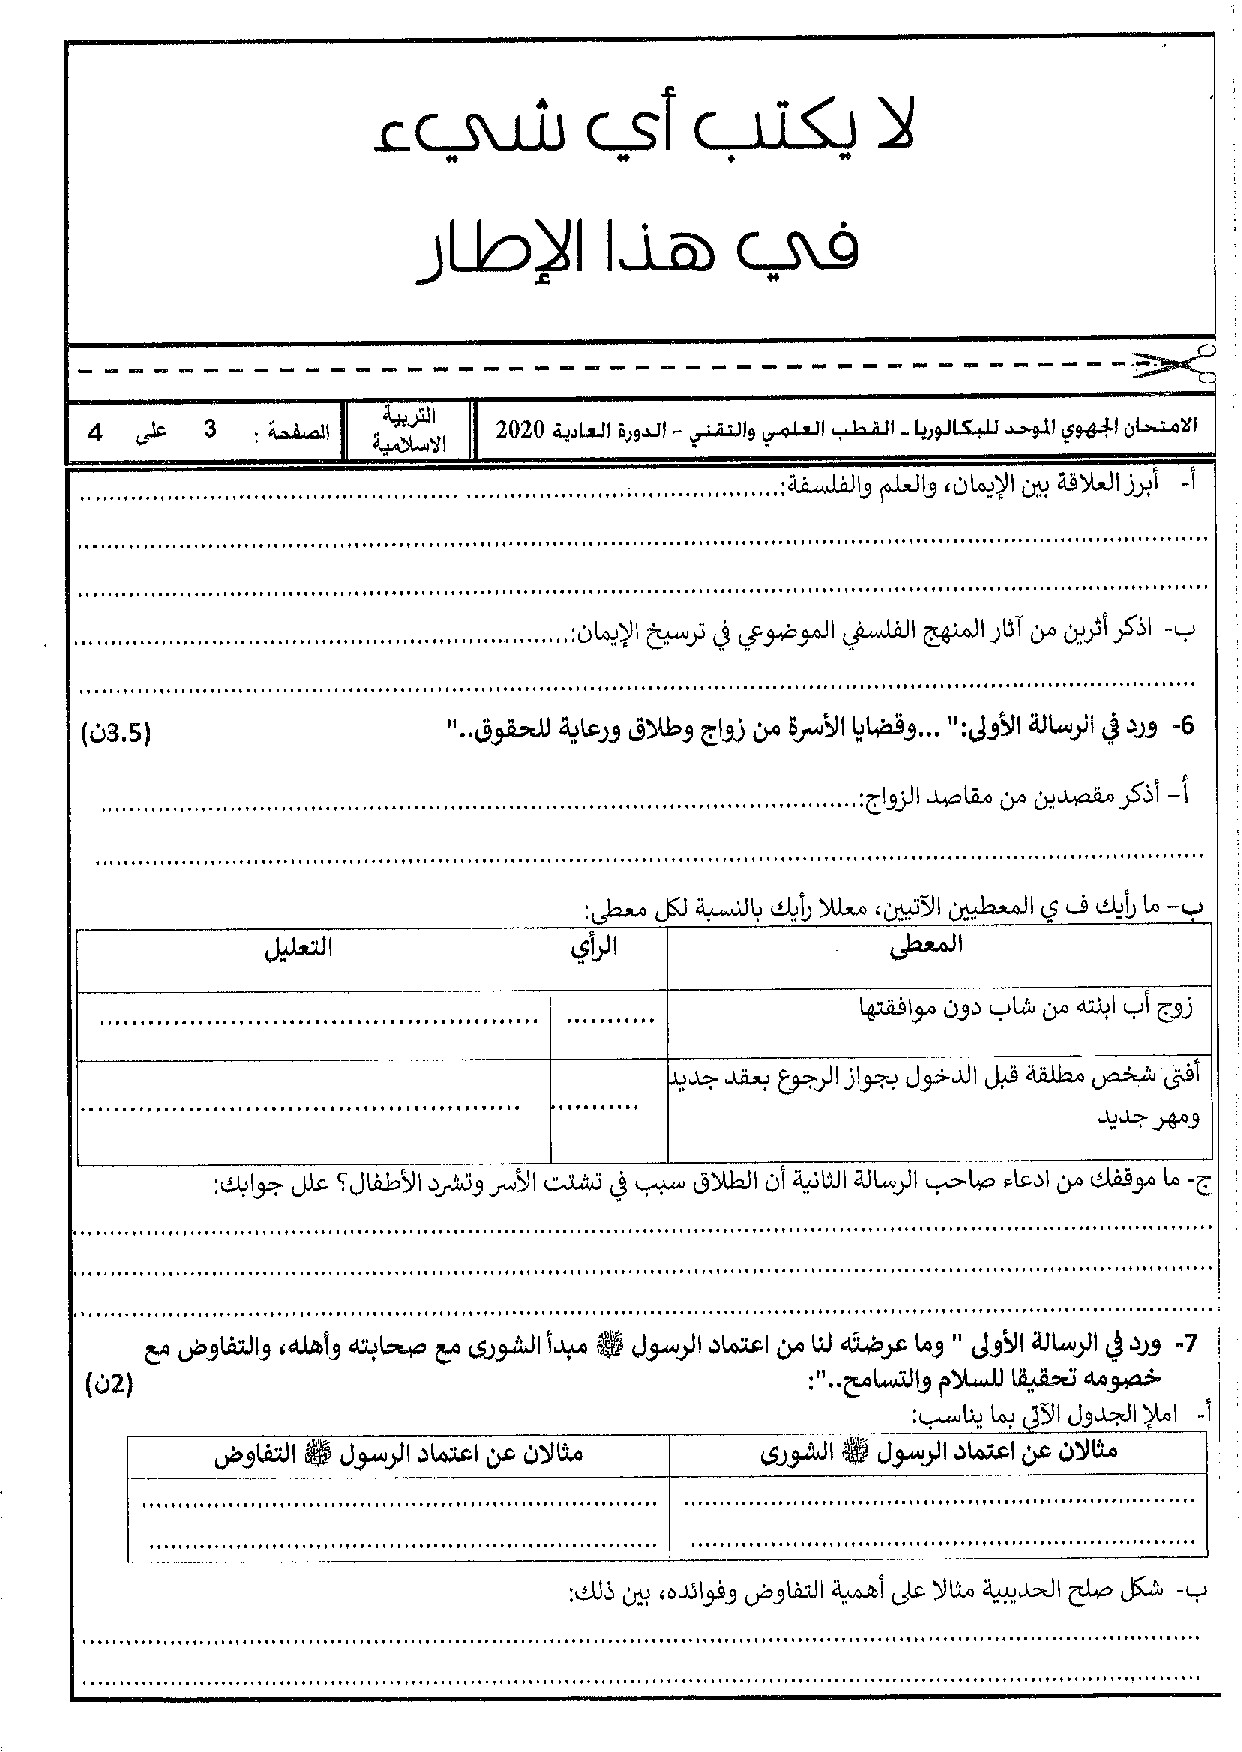 لا يكتب أي شيء
في هذا الإطار
الامتحان الجهوي الموحد للبكالوريا - القطب العلمي والتقني - الدورة العادية 2020
التربية الاسلامية
الصفحة : 3 على 4
أ- أبرز العلاقة بين الإيمان، والعلم والفلسفة:
ب- اذكر أثرين من آثار المنهج الفلسفي الموضوعي في ترسيخ الإيمان:
6- ورد في الرسالة الأولى:" ...وقضايا الأسرة من زواج وطلاق ورعاية للحقوق.." (3.5ن)
أ- أذكر مقصدين من مقاصد الزواج:
ب- ما رأيك ف ي المعطيين الآتيين، معللا رأيك بالنسبة لكل معطى:
المعطى الرأي التعليل
زوج أب ابنته من شاب دون موافقتها
أفتى شخص مطلقة قبل الدخول بجواز الرجوع بعقد جديد
ومهر جديد
ج- ما موقفك من ادعاء صاحب الرسالة الثانية أن الطلاق سبب في تشتت الأسر وتشرد الأطفال؟ علل جوابك:
7- ورد في الرسالة الأولى " وما عرضته لنا من اعتماد الرسول ﷺ مبدأ الشورى مع صحابته وأهله، والتفاوض مع
خصومه تحقيقا للسلام والتسامح..": (2ن)
أ- املإ الجدول الآتي بما يناسب:
مثالان عن اعتماد الرسول ﷺ الشورى مثالان عن اعتماد الرسول ﷺ التفاوض
ب- شكل صلح الحديبية مثالا على أهمية التفاوض وفوائده، بين ذلك: